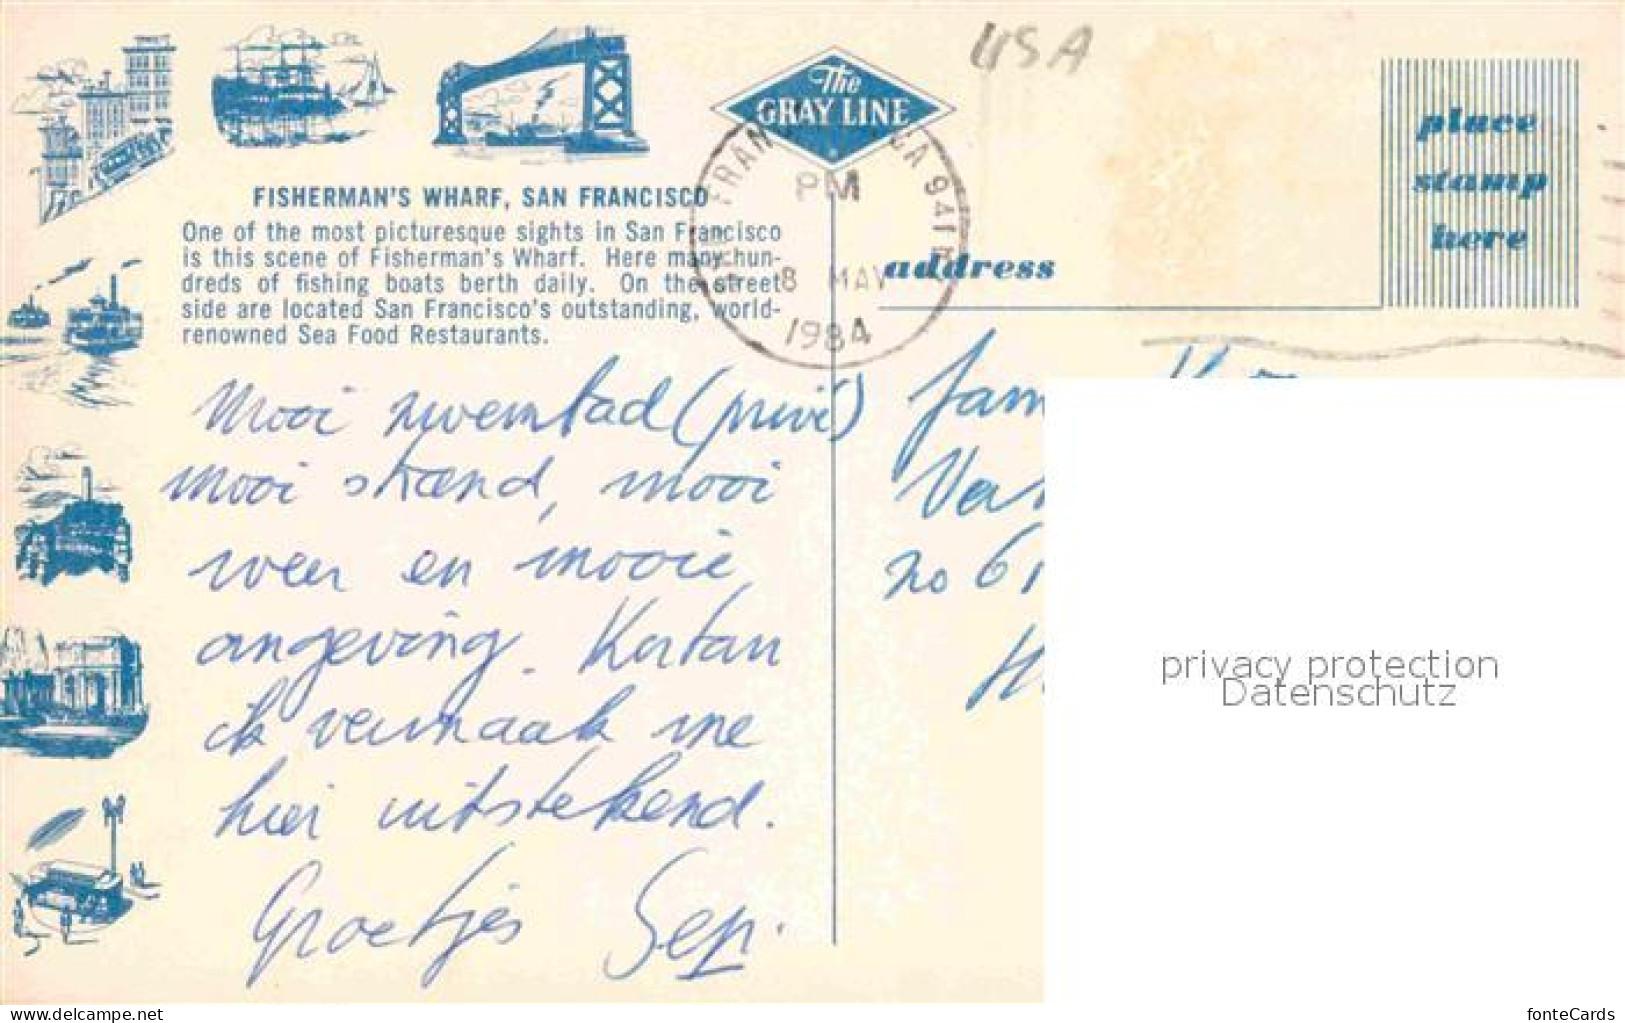 USA
The
GRAY LINE
PM
8 MAY
1984
CA 941
place
stamp
here
address
FISHERMAN'S WHARF, SAN FRANCISCO
One of the most picturesque sights in San Francisco
is this scene of Fisherman's Wharf. Here many hun-
dreds of fishing boats berth daily. On the street
side are located San Francisco's outstanding, world-
renowned Sea Food Restaurants.
Mooi zwembad (privé)
mooi strand, mooi
weer en mooie
omgeving. Kortom
ik vermaak me
hier uitstekend.
Groetjes Sep.
fam
no 61
privacy protection
Datenschutz
www.delcampe.net
fonteCards